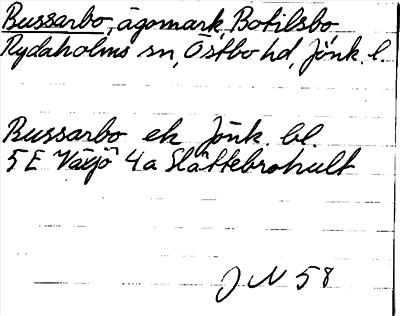 Bussarbo, ägomark, Botilsbo
Rydaholms sn, Östbo hd, Jönk. l.
Bussarbo ek Jönk. bl.
5 E Växjö 4a Slättebrohult
J N 58